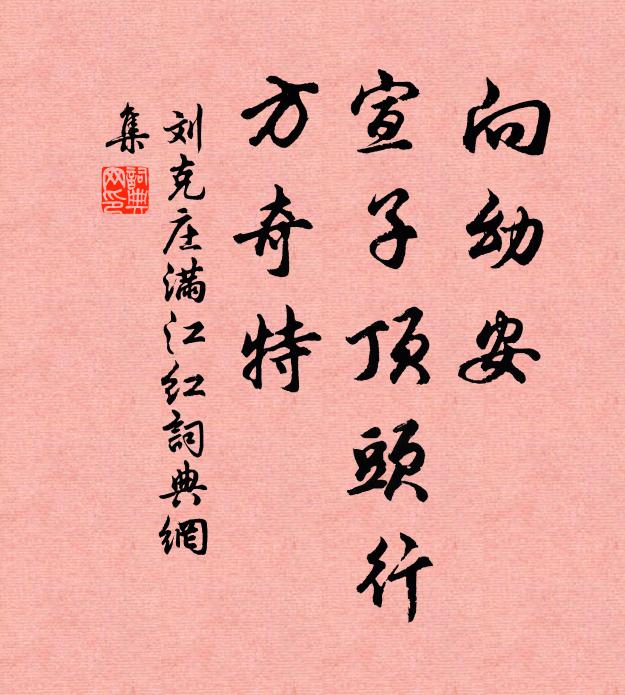 向幼安
宣子顶頭行
方奇特
刘克庄满江红詞典網
集
詞典
网印